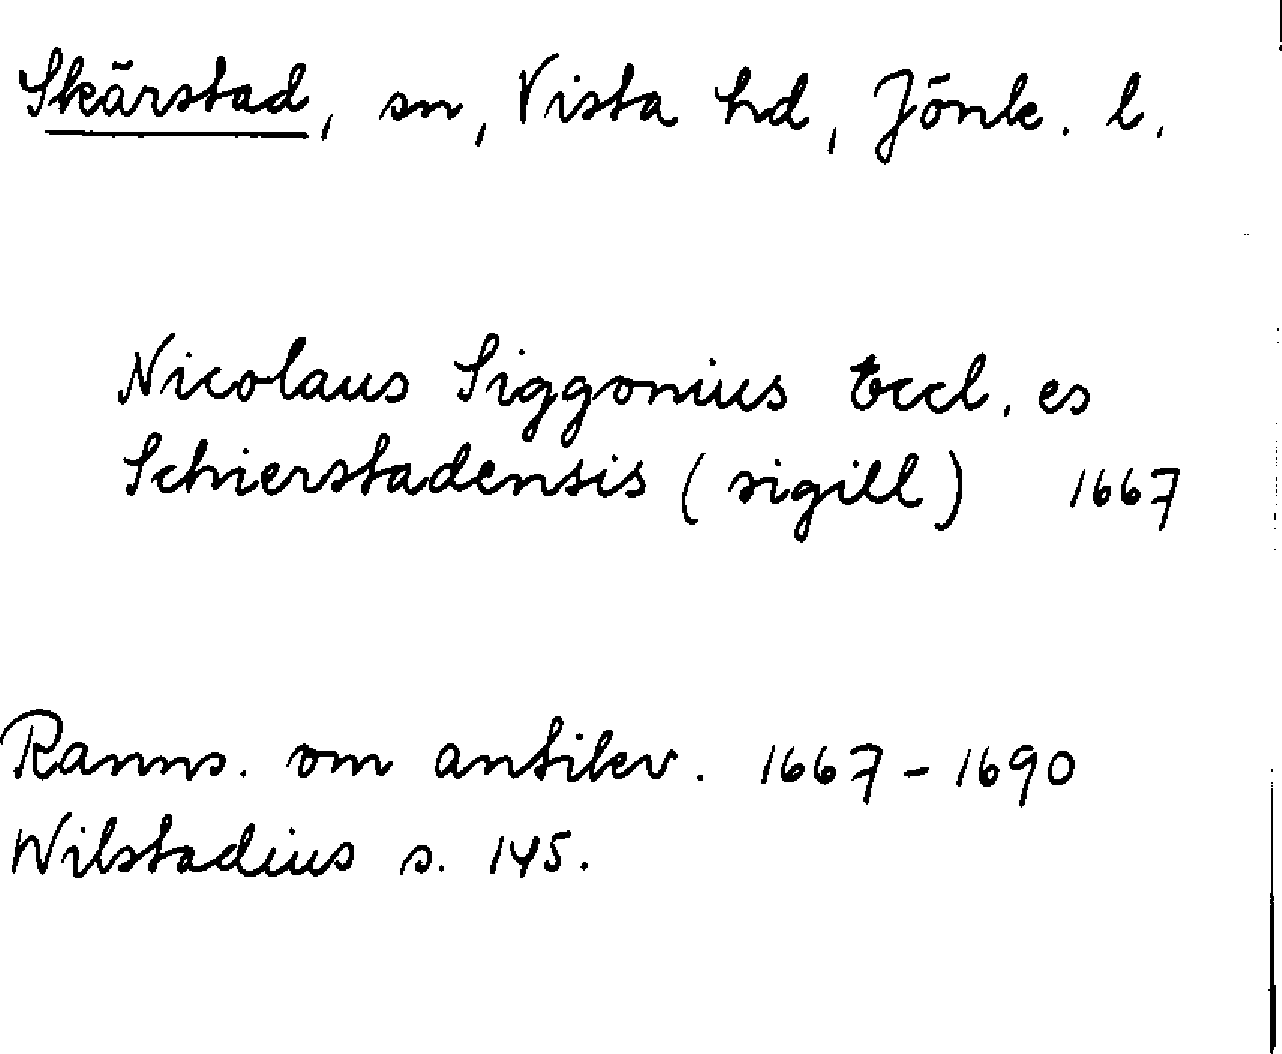 Skärstad, sn, Vista hd, Jönk. l.
Nicolaus Siggonius Eccl. es
Schierstadensis (sigill) 1667
Ranns. om antikv. 1667-1690
Wilstadius s. 145.